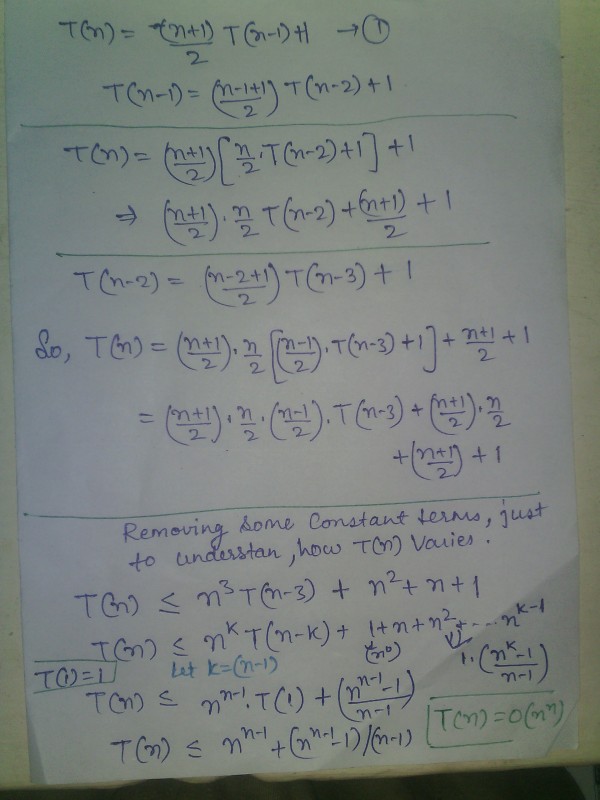 T(n) = (n+1)/2 T(n-1)+1 → ①
T(n-1) = ((n-1+1)/2) T(n-2) + 1
T(n) = ((n+1)/2) [n/2 · T(n-2)+1] + 1
⇒ ((n+1)/2) · n/2 T(n-2) + (n+1)/2 + 1
T(n-2) = ((n-2+1)/2) T(n-3) + 1
So, T(n) = ((n+1)/2) · n/2 [((n-1)/2) · T(n-3) + 1] + (n+1)/2 + 1
= ((n+1)/2) · n/2 · ((n-1)/2) · T(n-3) + ((n+1)/2) · n/2
+ ((n+1)/2) + 1
Removing some Constant terms, just
to understan, how T(n) Varies.
T(n) ≤ n³ T(n-3) + n² + n + 1
T(n) ≤ n^k T(n-k) + 1 + n + n² + ... n^(k-1)
(n⁰) 1·((n^k - 1)/(n-1))
T(1) = 1 Let k = (n-1)
T(n) ≤ n^(n-1) · T(1) + ((n^(n-1) - 1)/(n-1))
T(n) ≤ n^(n-1) + (n^(n-1) - 1)/(n-1) T(n) = O(n^n)